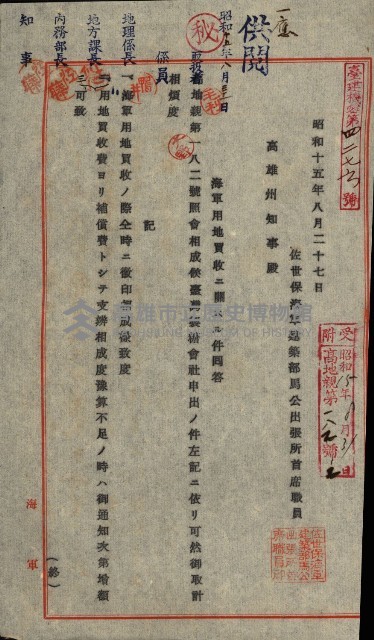 臺建機密第四二七六號
昭和十五年八月二十七日
佐世保海軍建築部馬公出張所首席職員
高雄州知事殿
海軍用地買收ニ關スル件回答
高地親第一八二號照會相成候臺灣製糖會社申出ノ件左記ニ依リ可然御取計
相煩度
記
一、海軍用地買收ノ際仝時ニ徵印相成度致度
二、用地買收費ヨリ補償費トシテ支辨相成度豫算不足ノ時ハ御通知次第增額
可致
(終)
海軍
受附
昭和15年8月31日
高地親第一八二號ノ2
一應
供閱
秘
昭和十五年八月三十一日
係員
地理係長
地方課長
內務部長
知事
高雄市立歷史博物館